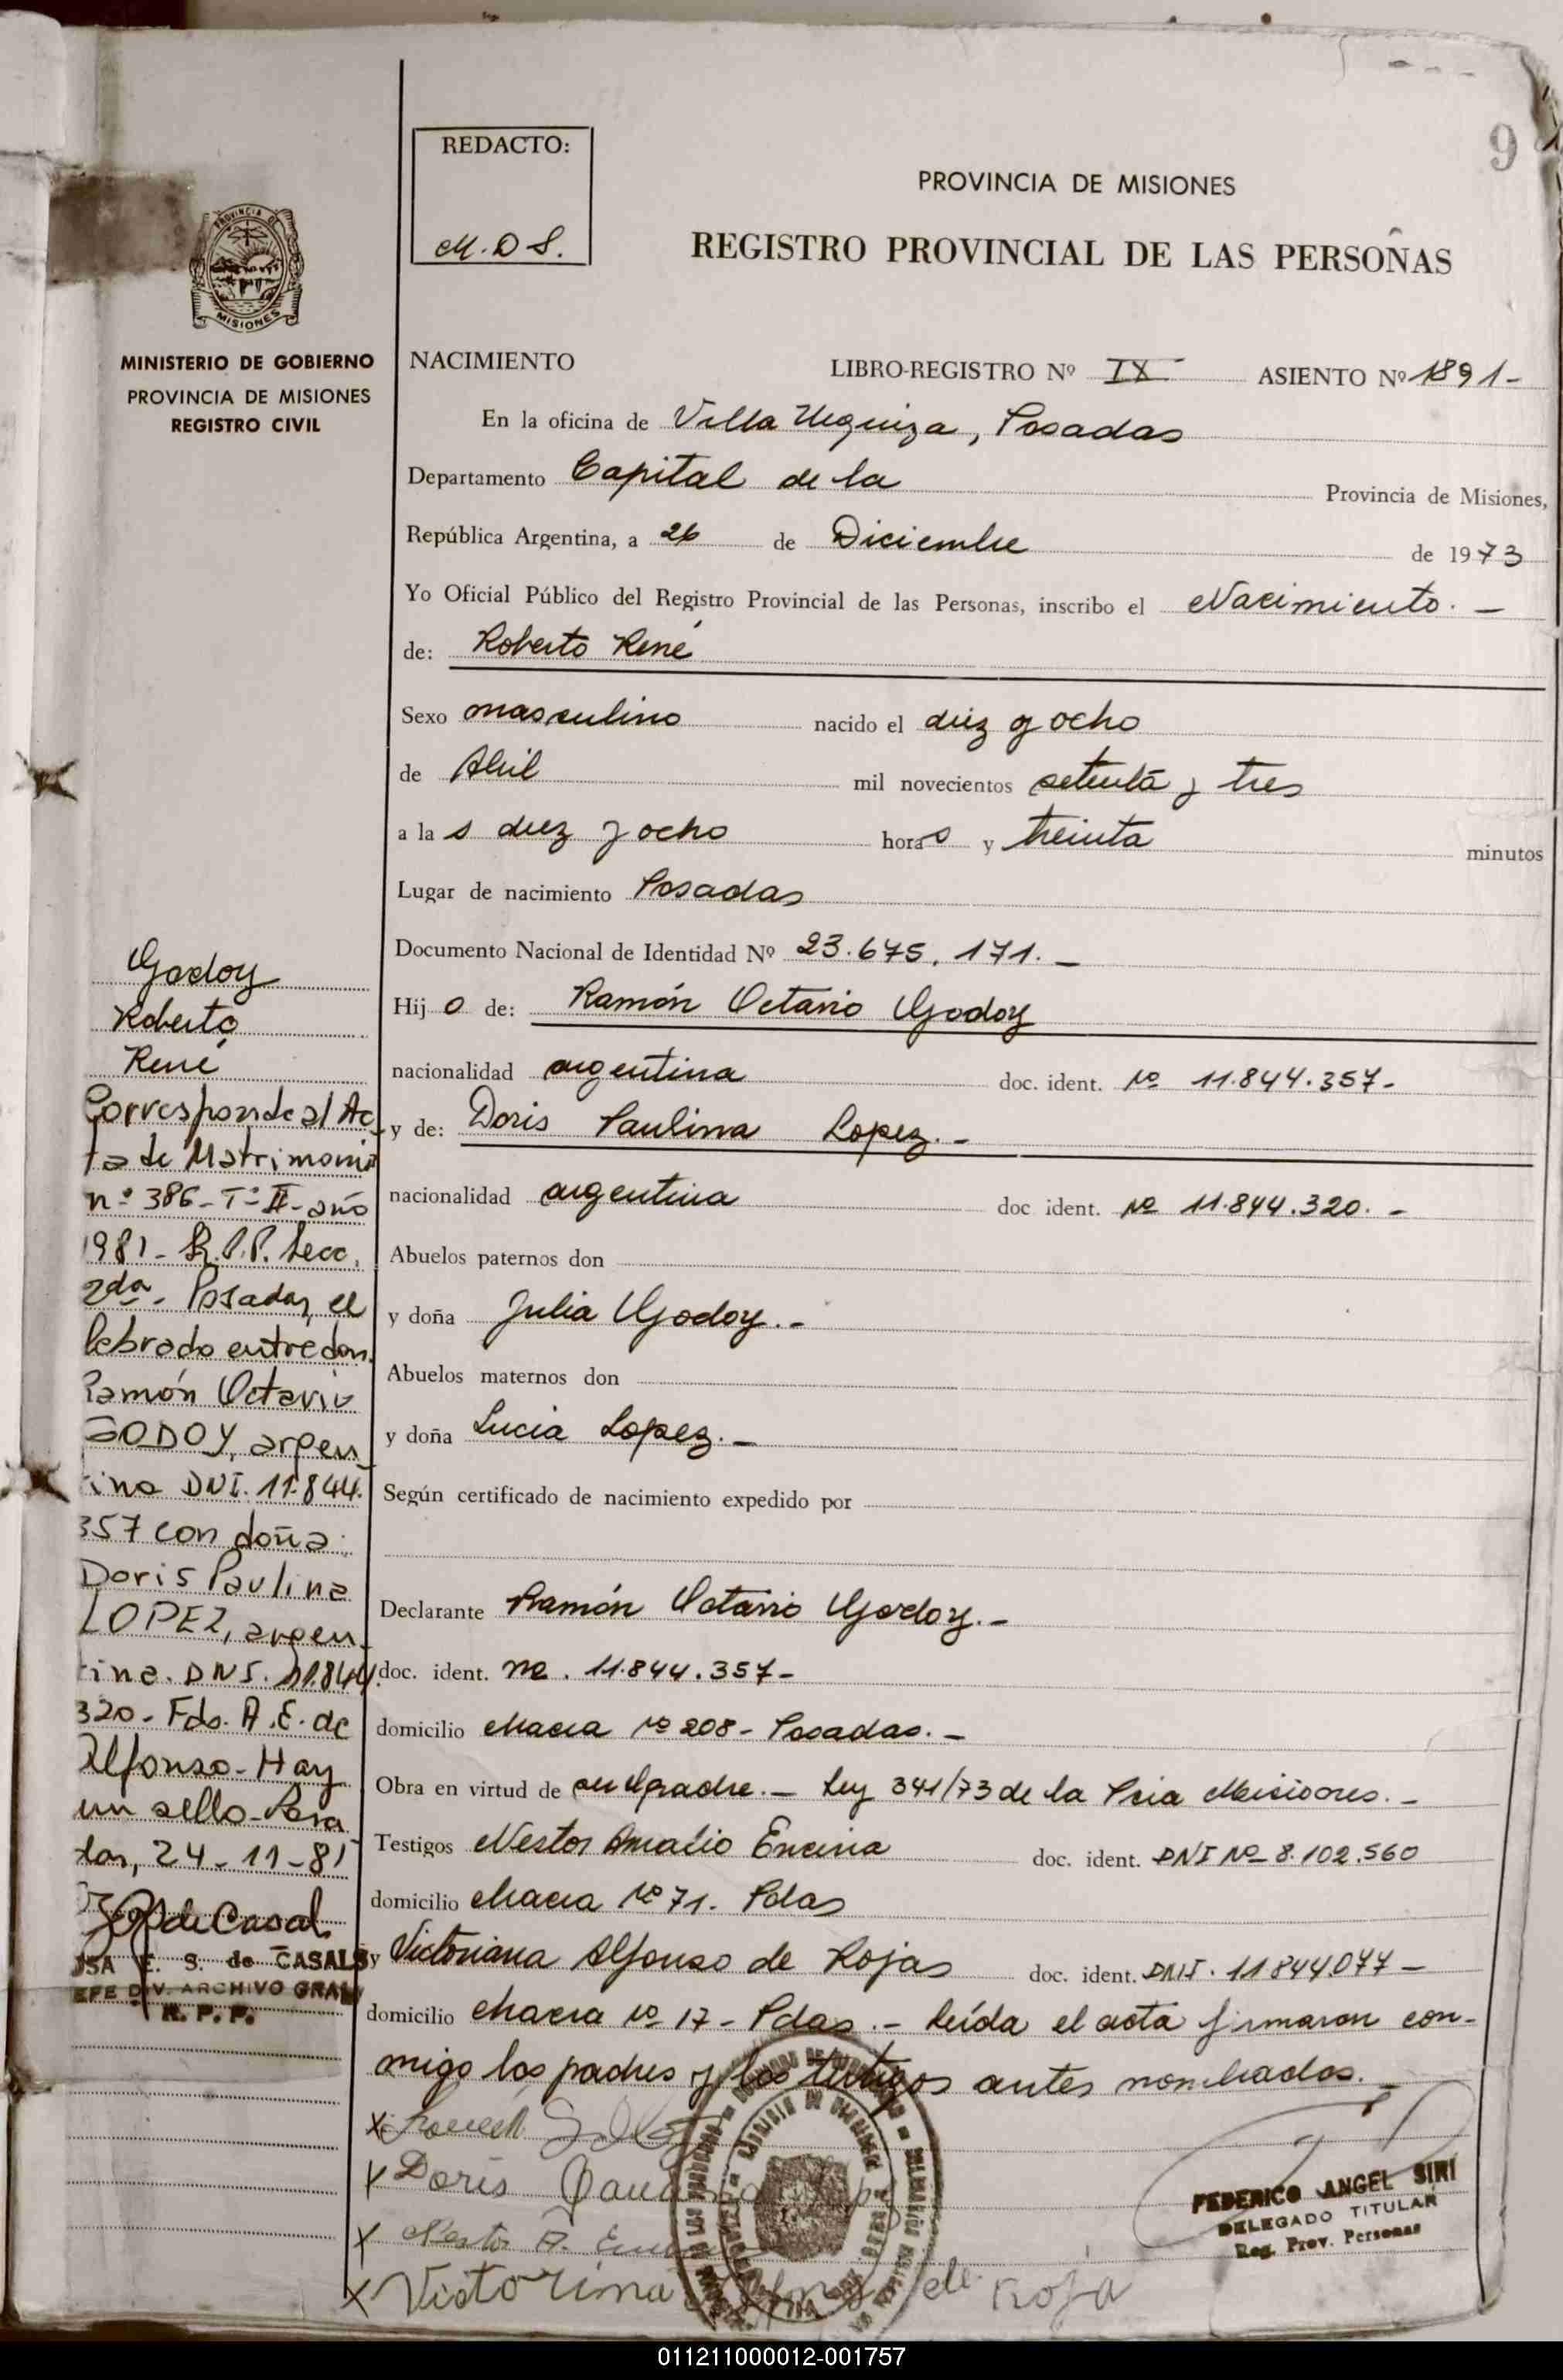 9
REDACTO:
M.D S.
PROVINCIA DE MISIONES
REGISTRO PROVINCIAL DE LAS PERSONAS
PROVINCIA DE
MISIONES
MINISTERIO DE GOBIERNO
PROVINCIA DE MISIONES
REGISTRO CIVIL
NACIMIENTO LIBRO-REGISTRO Nº IX ASIENTO Nº 1891-
En la oficina de Villa Urquiza, Posadas
Departamento Capital de la Provincia de Misiones,
República Argentina, a 26 de Diciembre de 1973
Yo Oficial Público del Registro Provincial de las Personas, inscribo el Nacimiento. -
de: Roberto René
Sexo masculino nacido el diez y ocho
de Abril mil novecientos setenta y tres
a las diez y ocho horas y treinta minutos
Lugar de nacimiento Posadas
Documento Nacional de Identidad Nº 23.675.171. -
Hijo de: Ramón Octavio Godoy
nacionalidad argentina doc. ident. Nº 11.844.357-
y de: Doris Paulina Lopez. -
nacionalidad argentina doc ident. Nº 11.844.320. -
Abuelos paternos don
y doña Julia Godoy. -
Abuelos maternos don
y doña Lucia Lopez. -
Según certificado de nacimiento expedido por
Declarante Ramón Octavio Godoy. -
doc. ident. Nº. 11.844.357-
domicilio chacra Nº 208 - Posadas. -
Obra en virtud de ser el padre. - Ley 341/73 de la Pcia Misiones. -
Testigos Nestor Amalio Encina doc. ident. DNI Nº 8.102.560
domicilio chacra Nº 71. Pdas
y Victoriana Alfonso de Rojas doc. ident. DNI. 11844077 -
domicilio chacra Nº 17 - Pdas. - Leída el acta firmaron con-
migo los padres y los testigos antes nombrados. -
Godoy
Roberto
René
Corresponde al Ac-
ta de Matrimonio
nº 386 - Tº II - año
1981 - R.P.P. Secc.
2da - Posadas, ce
lebrado entre don
Ramón Octavio
GODOY, argen
tino DNI. 11.844.
357 con doña
Doris Paulina
LOPEZ, argen-
tina. DNI. 11.844.
320 - Fdo. A.E. de
Alfonso - Hay
un sello - Posa
das, 24-11-81
de Casals
E. S. de CASALS
DIV. ARCHIVO GRAL
R. P. P.
x
x Doris
x Nestor A.
x Victorina de Roja
FEDERICO ANGEL SIRI
DELEGADO TITULAR
Reg. Prov. Personas
011211000012-001757